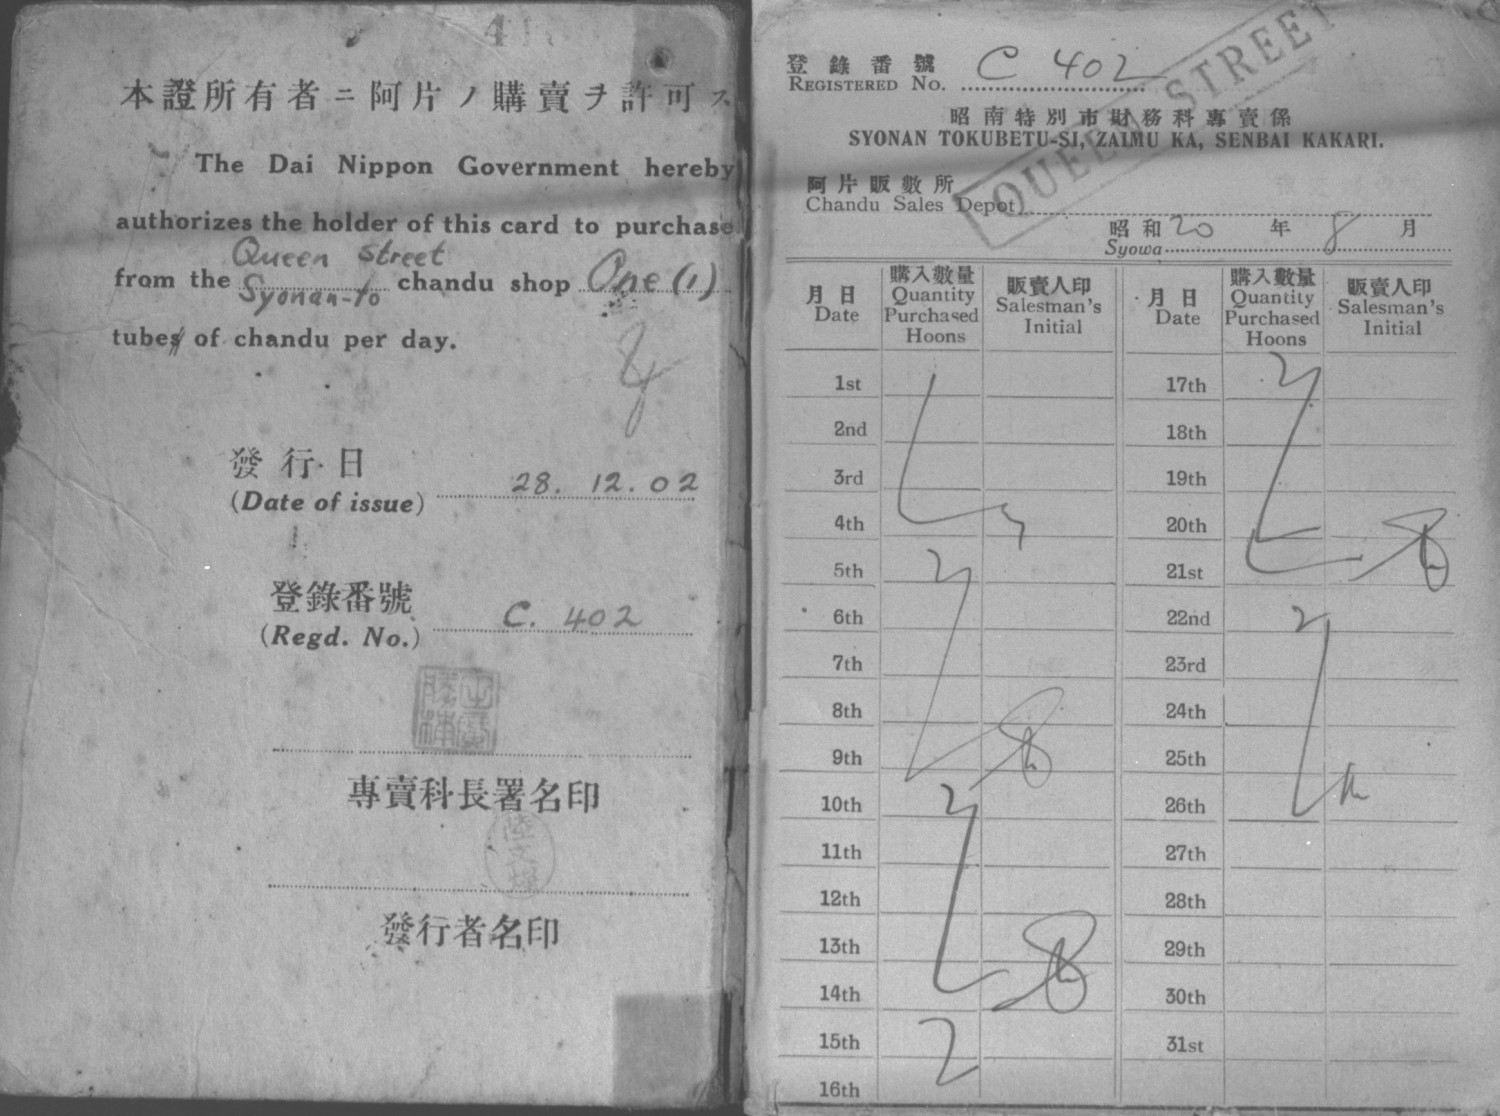 本證所有者ニ阿片ノ購賣ヲ許可ス
The Dai Nippon Government hereby
authorizes the holder of this card to purchase
Queen Street
from the Syonan-to chandu shop One (1)
tubes of chandu per day.
發行日
(Date of issue) 28. 12. 02
登錄番號
(Regd. No.) C. 402
專賣科長署名印
發行者名印
登錄番號
REGISTERED NO. C 402
QUEEN STREET
昭南特別市財務科專賣係
SYONAN TOKUBETU-SI, ZAIMU KA, SENBAI KAKARI.
阿片販數所
Chandu Sales Depot
昭和20年8月
Syowa
月日 購入數量 販賣人印 月日 購入數量 販賣人印
Date Quantity Purchased Hoons Salesman's Initial Date Quantity Purchased Hoons Salesman's Initial
1st 17th
2nd 18th
3rd 19th
4th 20th
5th 21st
6th 22nd
7th 23rd
8th 24th
9th 25th
10th 26th
11th 27th
12th 28th
13th 29th
14th 30th
15th 31st
16th